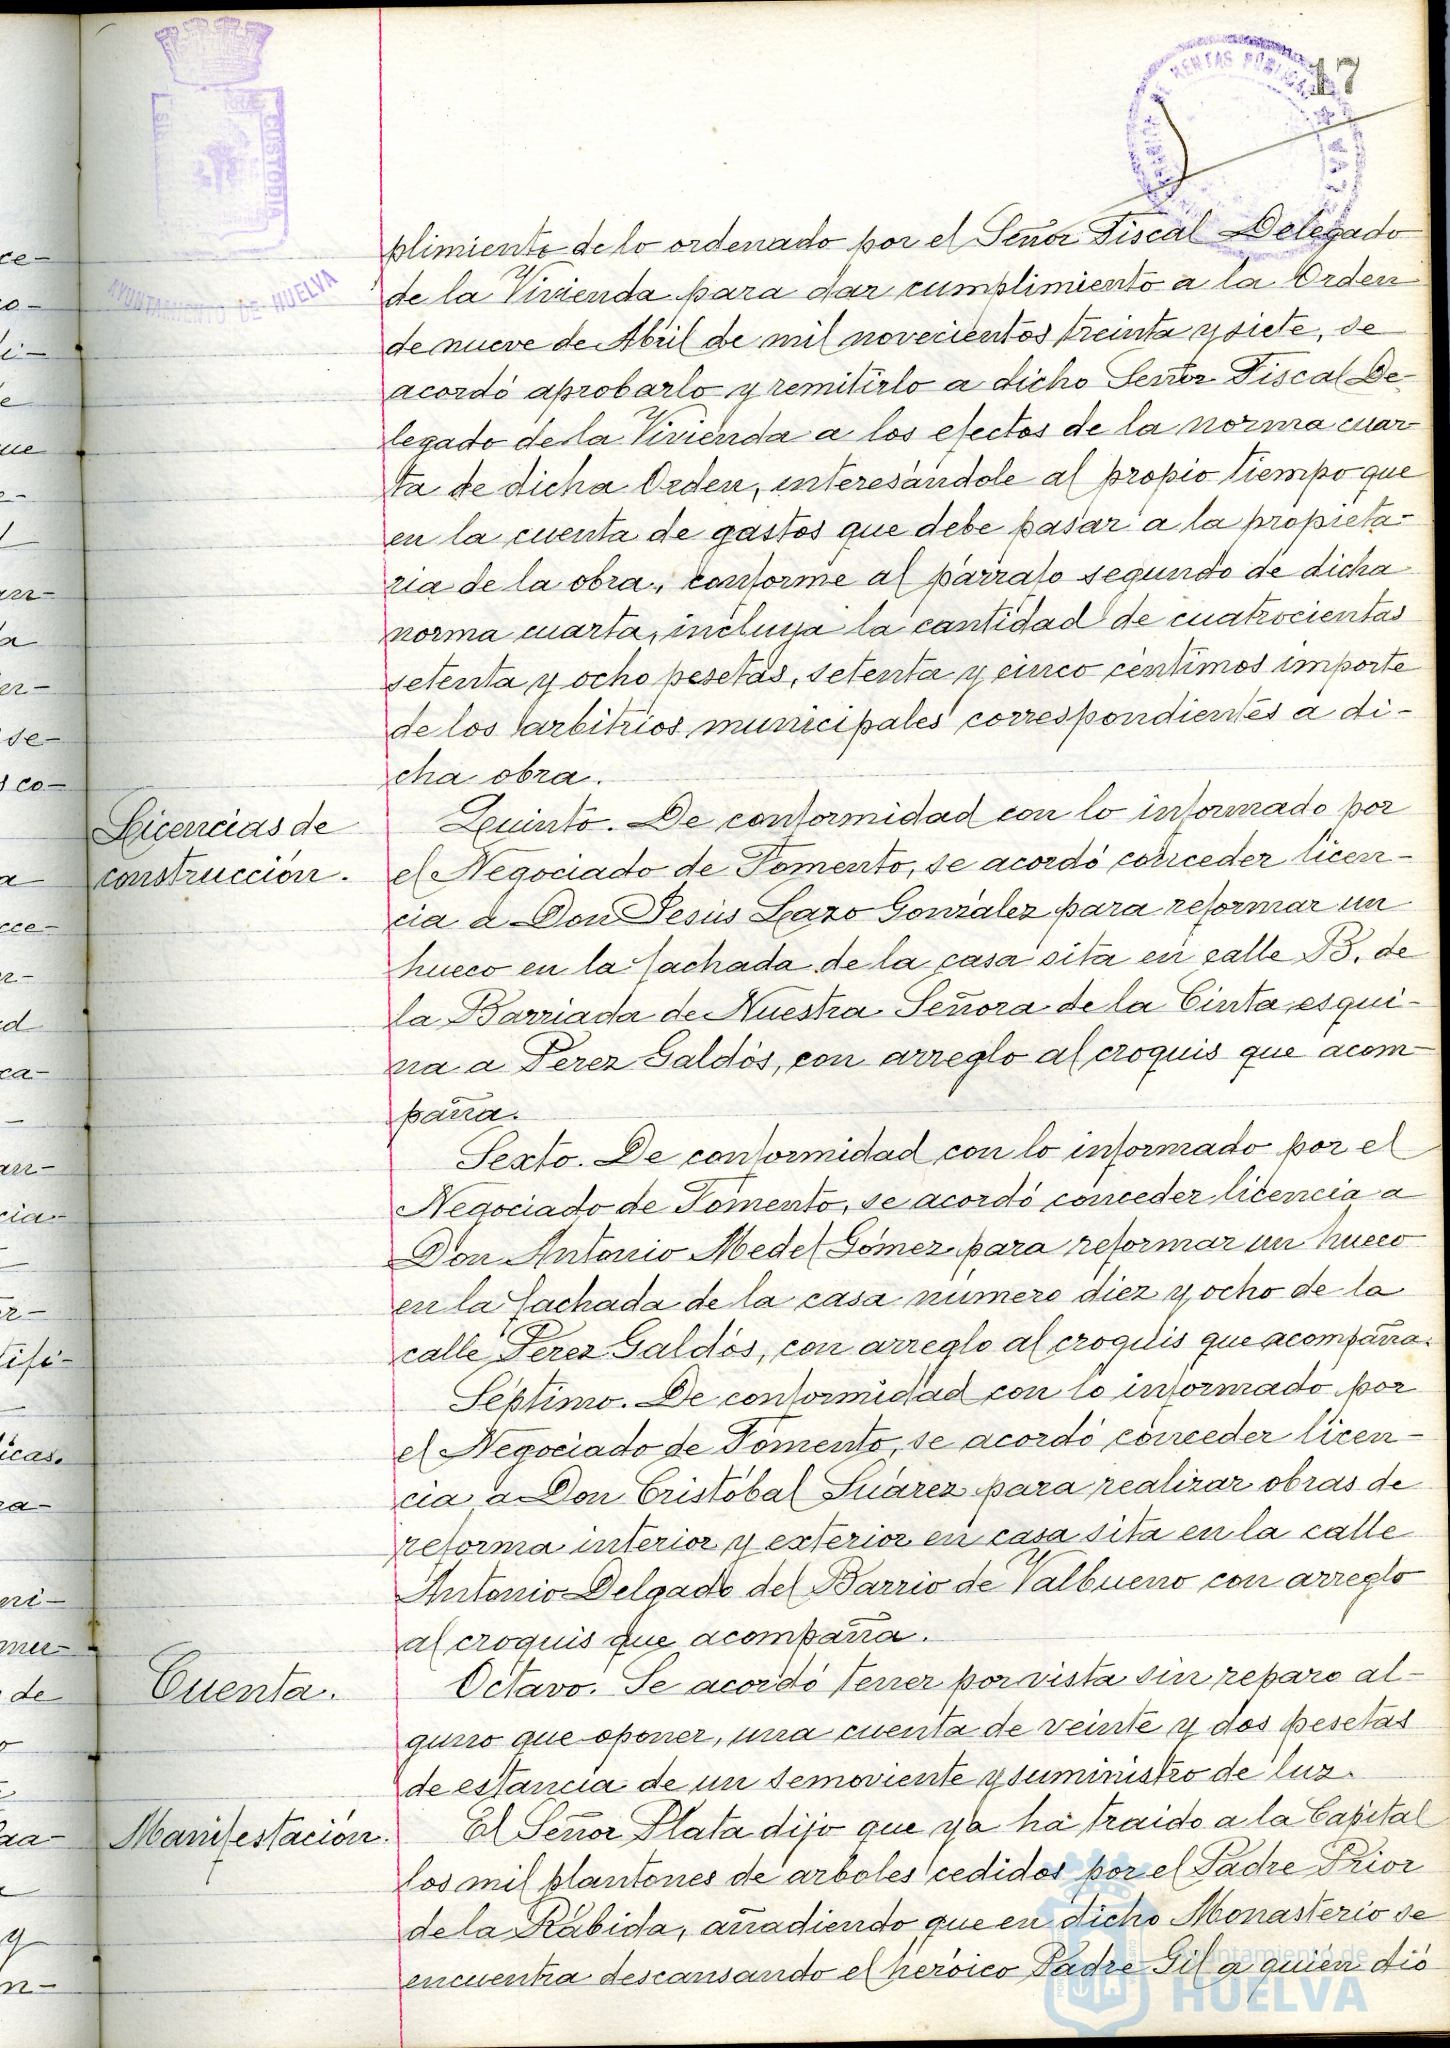 17
AYUNTAMIENTO DE HUELVA
CUSTODIA
RENTAS PUBLICAS
plimiento de lo ordenado por el Señor Fiscal Delegado
de la Vivienda para dar cumplimiento a la Orden
de nueve de Abril de mil novecientos treinta y siete, se
acordó aprobarlo y remitirlo a dicho Señor Fiscal De-
legado de la Vivienda a los efectos de la norma cuar-
ta de dicha Orden, interesándole al propio tiempo que
en la cuenta de gastos que debe pasar a la propieta-
ria de la obra, conforme al párrafo segundo de dicha
norma cuarta, incluya la cantidad de cuatrocientas
setenta y ocho pesetas, setenta y cinco céntimos importe
de los arbitrios municipales correspondientes a di-
cha obra.
Licencias de
construcción.
Quinto. De conformidad con lo informado por
el Negociado de Fomento, se acordó conceder licen-
cia a Don Jesús Lazo González para reformar un
hueco en la fachada de la casa sita en calle B. de
la Barriada de Nuestra Señora de la Cinta esqui-
na a Perez Galdós, con arreglo al croquis que acom-
paña.
Sexto. De conformidad con lo informado por el
Negociado de Fomento, se acordó conceder licencia a
Don Antonio Medel Gómez para reformar un hueco
en la fachada de la casa número diez y ocho de la
calle Perez Galdós, con arreglo al croquis que acompaña.
Séptimo. De conformidad con lo informado por
el Negociado de Fomento, se acordó conceder licen-
cia a Don Cristóbal Suárez para realizar obras de
reforma interior y exterior en casa sita en la calle
Antonio Delgado del Barrio de Valbueno con arreglo
al croquis que acompaña.
Cuenta.
Octavo. Se acordó tener por vista sin reparo al-
guno que oponer, una cuenta de veinte y dos pesetas
de estancia de un semoviente y suministro de luz.
Manifestación.
El Señor Plata dijo que ya há traido a la Capital
los mil plantones de arboles cedidos por el Padre Prior
de la Rábida, añadiendo que en dicho Monasterio se
encuentra descansando el heróico Padre Gil a quién dió
Ayuntamiento de
HUELVA